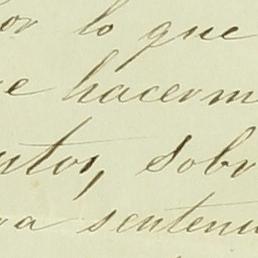 or lo que
e hacerm
utos, sobr
va sentenci